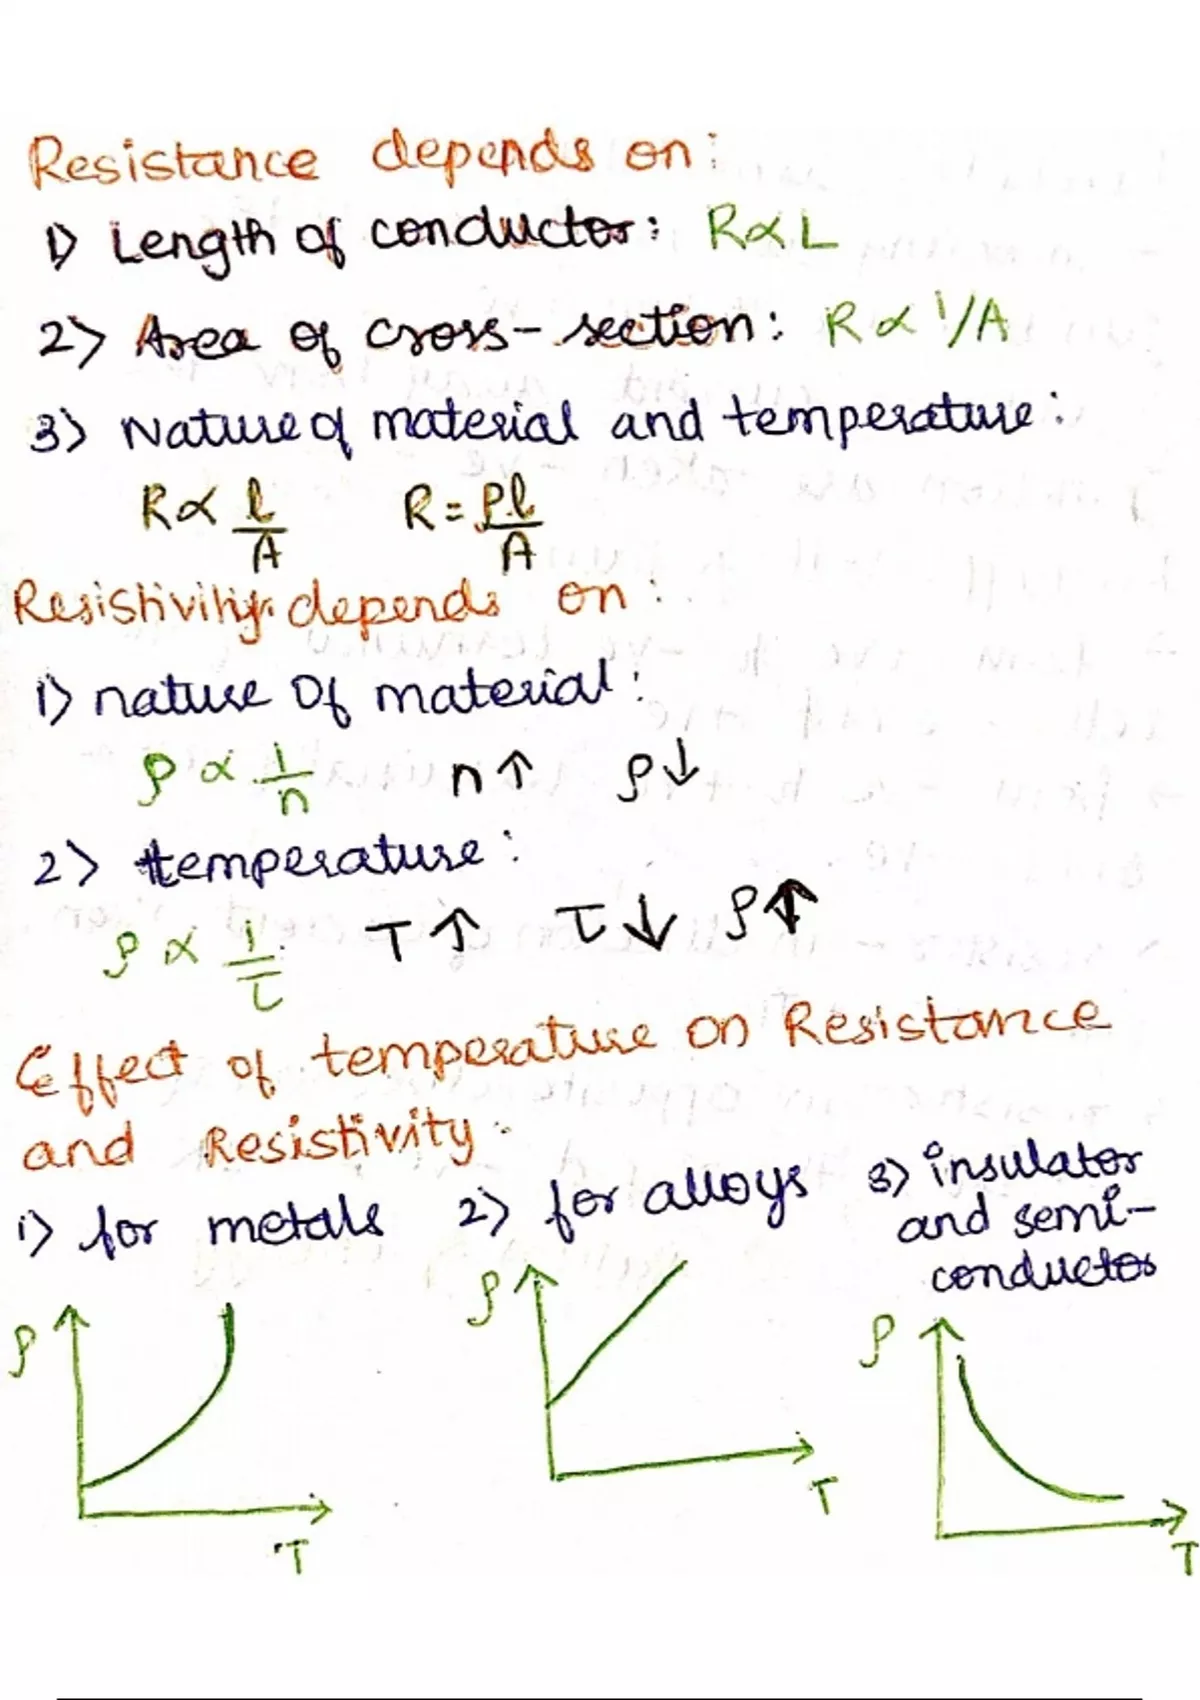 Resistance depends on:
1) Length of conductor: R∝L
2) Area of cross-section: R∝1/A
3) Nature of material and temperature:
R∝ l/A R=ρl/A
Resistivity depends on:
1) nature of material:
ρ ∝ 1/n n↑ ρ↓
2) temperature:
ρ ∝ 1/τ T↑ τ↓ ρ↑
Effect of temperature on Resistance
and Resistivity.
1) for metals 2) for alloys 3) insulator
and semi-
conductor
ρ T ρ T ρ T